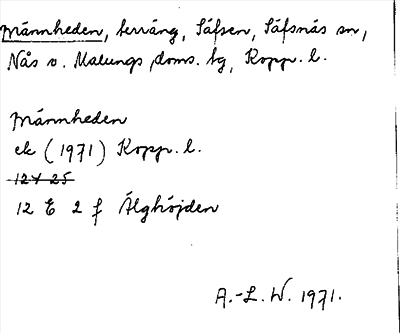 Männheden, terräng, Säfsen, Säfsnäs sn,
Nås o. Malungs doms. bg, Kopp. l.
Männheden
ek (1971) Kopp. l.
12 Y 25
12 E 2 f Älghöjden
A.-L. W. 1971.